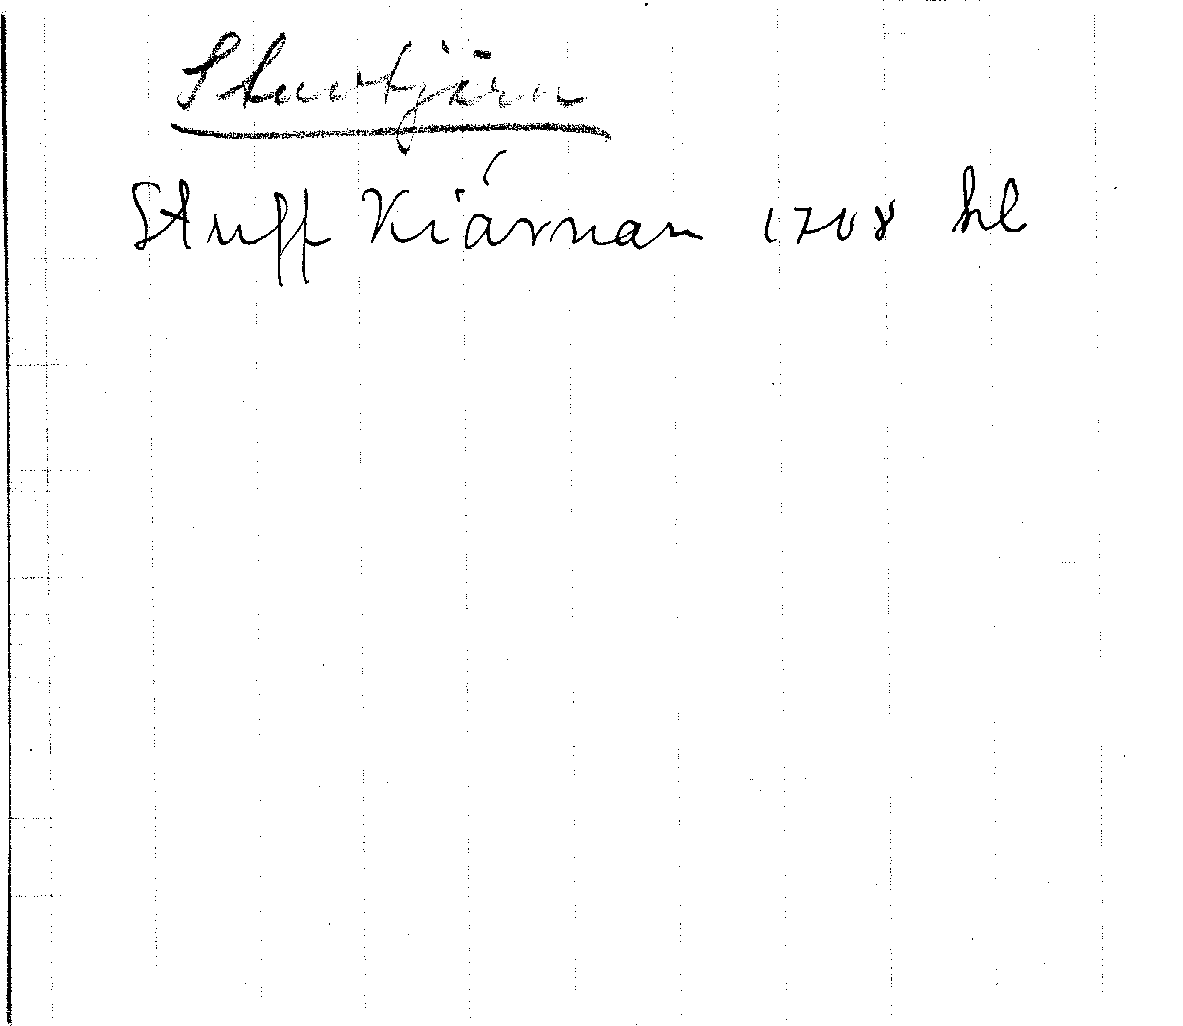 Stuvtjärn
Stuff Kiárnan 1708 hl